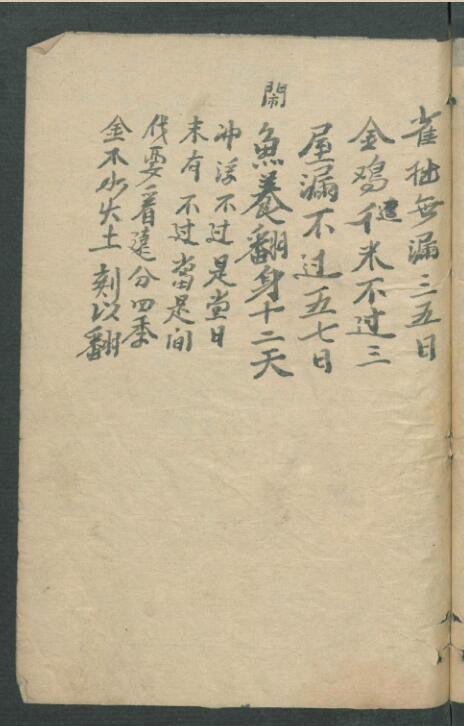 雀扯無漏三五日
金鸡千米不过三
屋漏不过五七日
鬧
魚養翻身十二天
冲浮不过是当日
未有不过當是间
伐要看遠分四季
金木水火土刻以翻